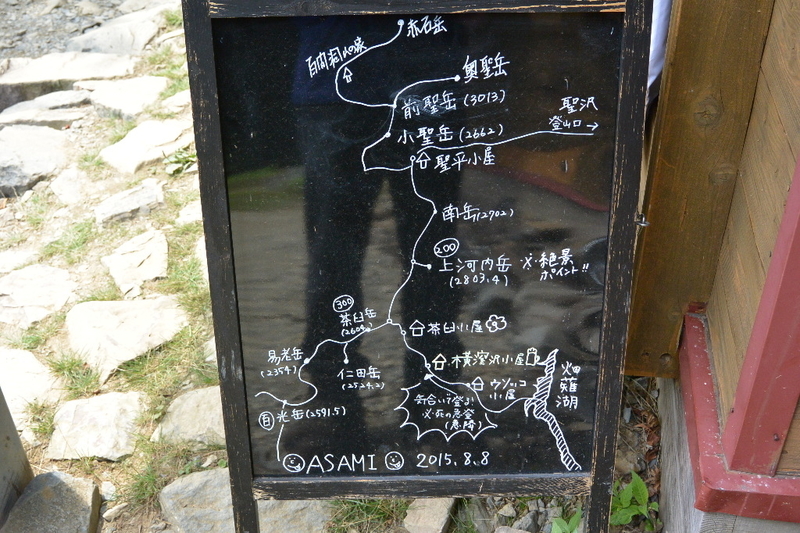 赤石岳
百間洞山の家
奥聖岳
前聖岳(3013)
聖沢
登山口→
小聖岳(2662)
聖平小屋
南岳(2702)
200
上河内岳
(2803.4)
絶景
ポイント!!
300
茶臼岳
(2604)
茶臼小屋
易老岳
(2354)
仁田岳
(2524.2)
横窪沢小屋
ウソッコ
小屋
畑薙湖
気合いで登る!
必死の急登
(急降)
百
光岳(2591.5)
ASAMI 2015.8.8